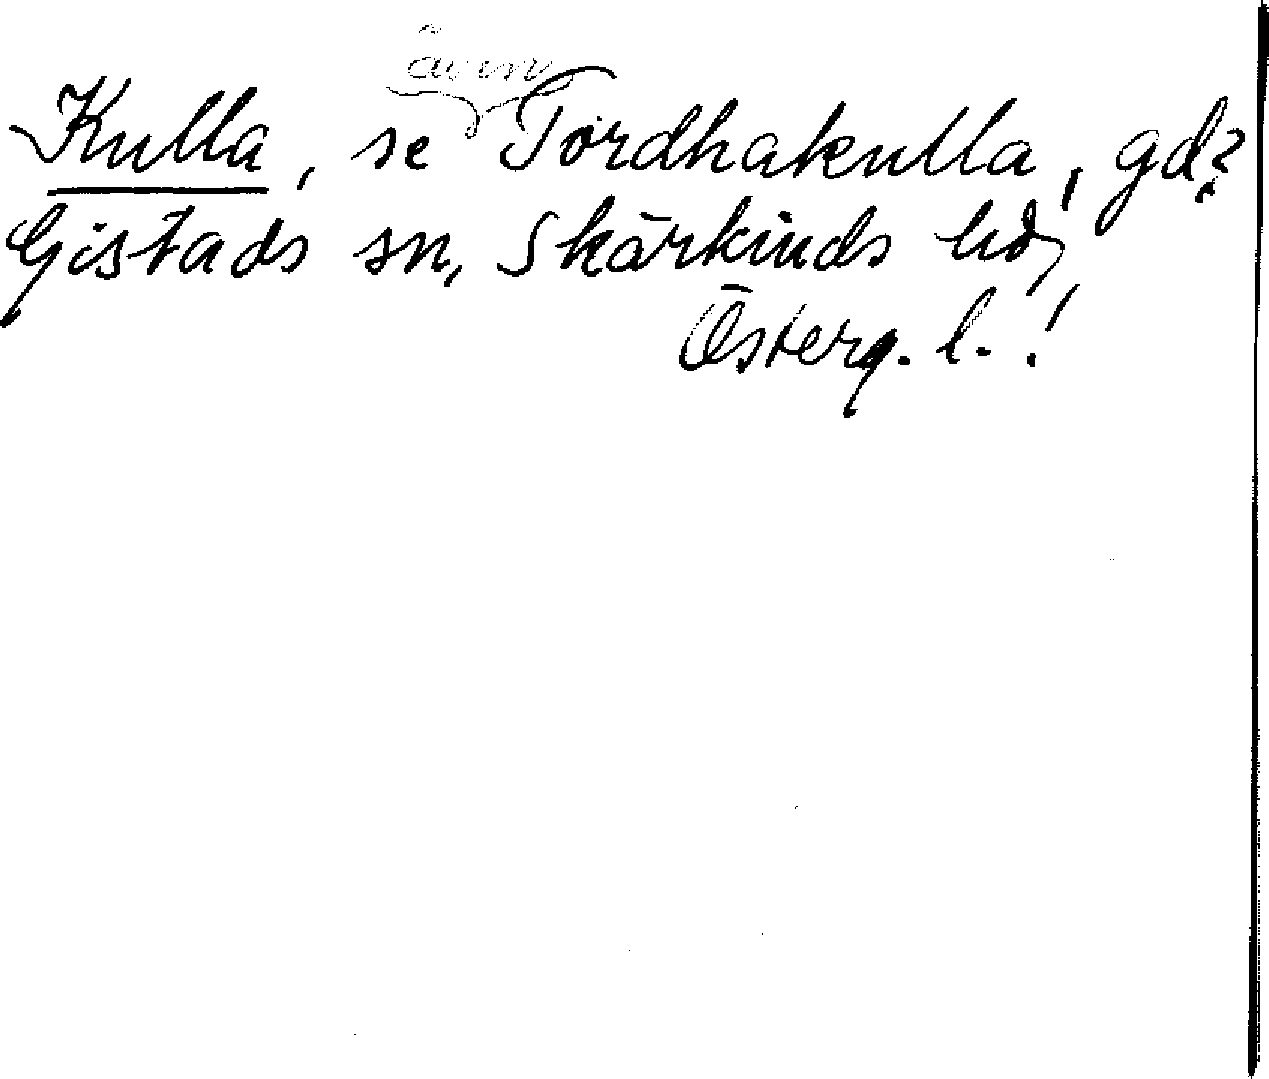 även
Kulla, se Tordhakulla, gd?
Gistads sn, Skärkinds hd,
Österg. l. !